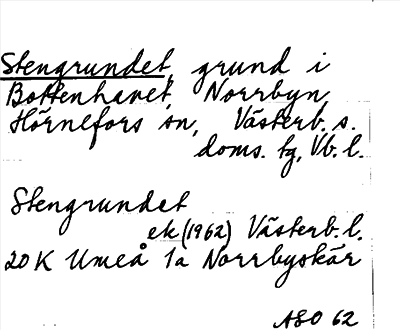 Stengrundet, grund i
Bottenhavet, Norrbyn,
Hörnefors sn, Västerb. s.
doms. tg, Vb. l.
Stengrundet
ek (1962) Västerb. l.
20 K Umeå 1a Norrbyskär
ASO 62